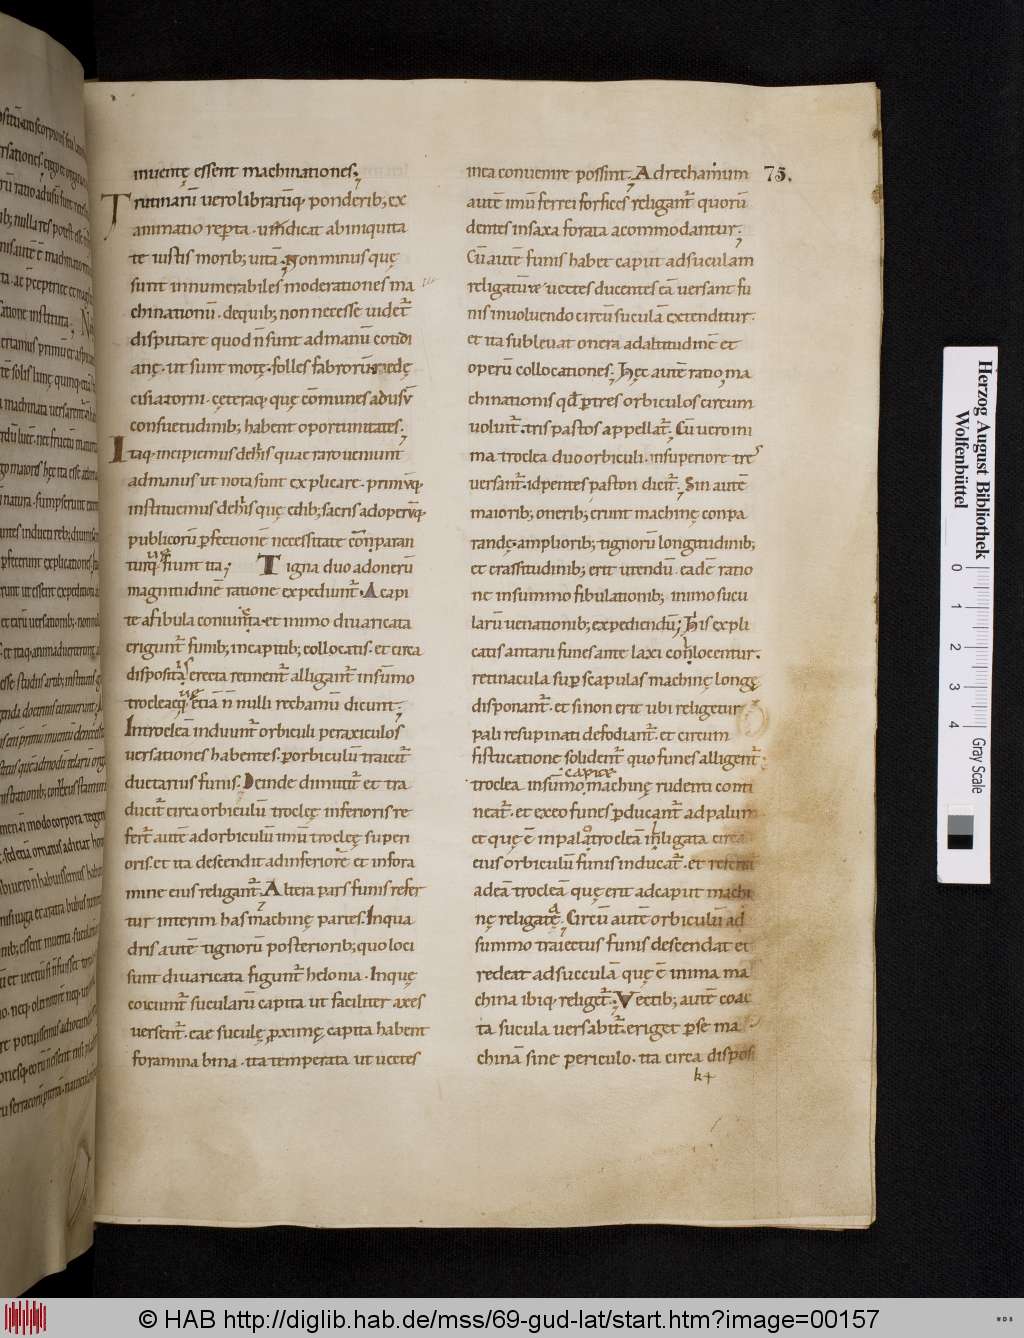 inuentę essent machinationes;
Trutinarū uero librarūq; ponderib; ex
aminatio reperta uindicat ab iniquita
te iustis morib; uitā. Non minus quę
sunt innumerabiles moderationes ma
chinationū. de quib; non necesse uidet̄
disputare quod n̄ sunt ad manū cotidi
anę. ut sunt motę. folles fabrorū. rædę
cisia torni. cęteraq; quę cōmunes ad usū
consuetudinib; habent oportunitates.
Itaq; incipiemus de his quae raro ueniunt
ad manus ut nota sunt explicare. primūq;
instituemus de his quę ędib; sacris ad operūq;
publicorū ꝑfectionē necessitate conparan
turq; fiunt ita; Tigna duo ad onerū
magnitudinē ratione expediunt̄. A capi
te a fibula coniuncta. et in imo diuaricata
erigunt̄ funib; in capitib; collocatis. et circa
dispositis erecta retinent̄ alligant̄ in sūmo
trocleaq; etiā n̄ nulli rechamū dicunt.
In trocleā indunt̄ orbiculi per axiculos
uersationes habentes. ꝑ orbiculū traicit̄
ductarius funis. Deinde dimittit̄ et tra
ducit̄ circa orbiculū troclęę inferioris re
fert̄ autē ad orbiculū imū troclęę superi
oris. et ita descendit ad inferiorē et in fora
mine eius religant̄. Altera pars funis refer
tur interim has machinę partes. In qua
dris autē tignorū posteriorib; quo loci
sunt diuaricata figunt̄ helonia. In quę
coiciunt̄ sucularū capita ut faciliter axes
uersent̄. eae suculę ꝓximę capita habent
foramina bina. ita temperata ut uectes
in ea conuenire possint. Ad rechamum 75.
autē imū ferrei forfices religant̄ quorū
dentes in saxa forata acommodantur.
Cū autē funis habet caput ad suculam
religatū ræ uectes ducentes eā uersant fu
nis inuoluendo circū suculā extenditur.
et ita subleuat onera ad altitudinē et
operū collocationes. Hęc autē ratio ma
chinationis qđ ꝑ tres orbiculos circum
uoluit̄. tris pastos appellat̄. Cū uero in i
ma troclea duo orbiculi. in superiore tres
uersant̄. id pentes paston dicit̄. Sin autē
maiorib; onerib; erunt machinę conpa
randę. ampliorib; tignorū longitudinib;
et crassitudinib; erit utendū. eadē ratio
ne in summo fibulationib; in imo sucu
larū uenationib; expediendū; His expli
catis antarii funes ante laxi conlocentur.
retinacula suꝑ scapulas machinę longę
disponant̄. et si non erit ubi religetur
pali resupinati defodiant̄. et circum
fistucatione solident̄ quo funes alligent̄
troclea in sūmo capite machinę rudenti conti
neat̄. et ex eo funes ꝑducant̄ ad palum
et quę ē in palo trocleā inligata circa
eius orbiculū funis inducat̄. et refera
ad eā trocleā quę erit ad caput machi
nę religata. Circū autē orbiculū ad
summo traiectus funis descendat et
redeat ad succulā quę ē in ima ma
china ibiq; religet̄. Vectib; autē coac
ta sucula uersabit̄. eriget ꝑ se ma
chinā sine periculo. ita circa dispos
Herzog August Bibliothek
Wolfenbüttel
0 1 2 3 4
Gray Scale
© HAB http://diglib.hab.de/mss/69-gud-lat/start.htm?image=00157